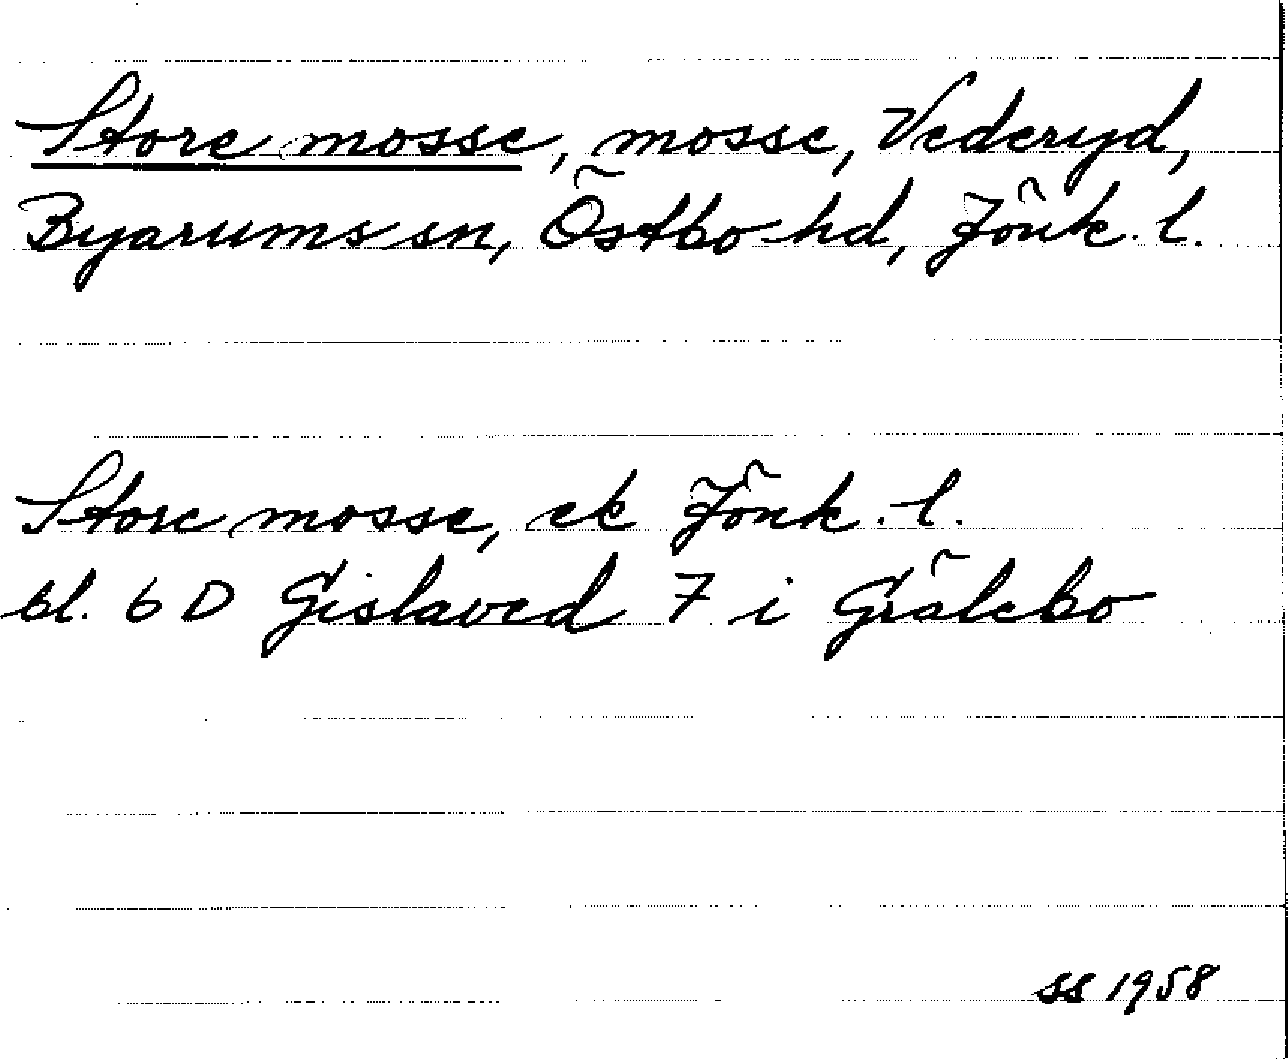 Store mosse, mosse, Vederyd,
Byarums sn, Östbo hd, Jönk. l.
Store mosse, ek Jönk. l.
bl. 6 D Gislaved 7 i Grälebo
SS 1958